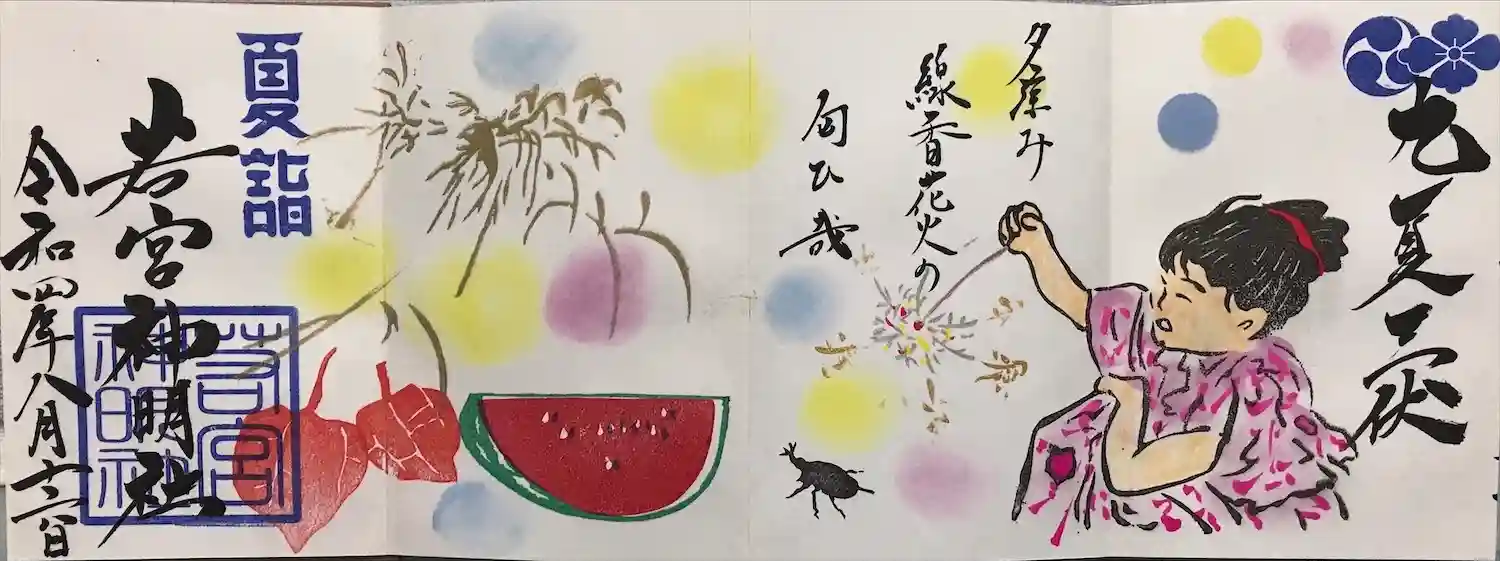 九夏三伏
夕涼み
線香花火の
匂ひ哉
夏詣
若宮神明社
若宮
神明社
令和四年八月十三日